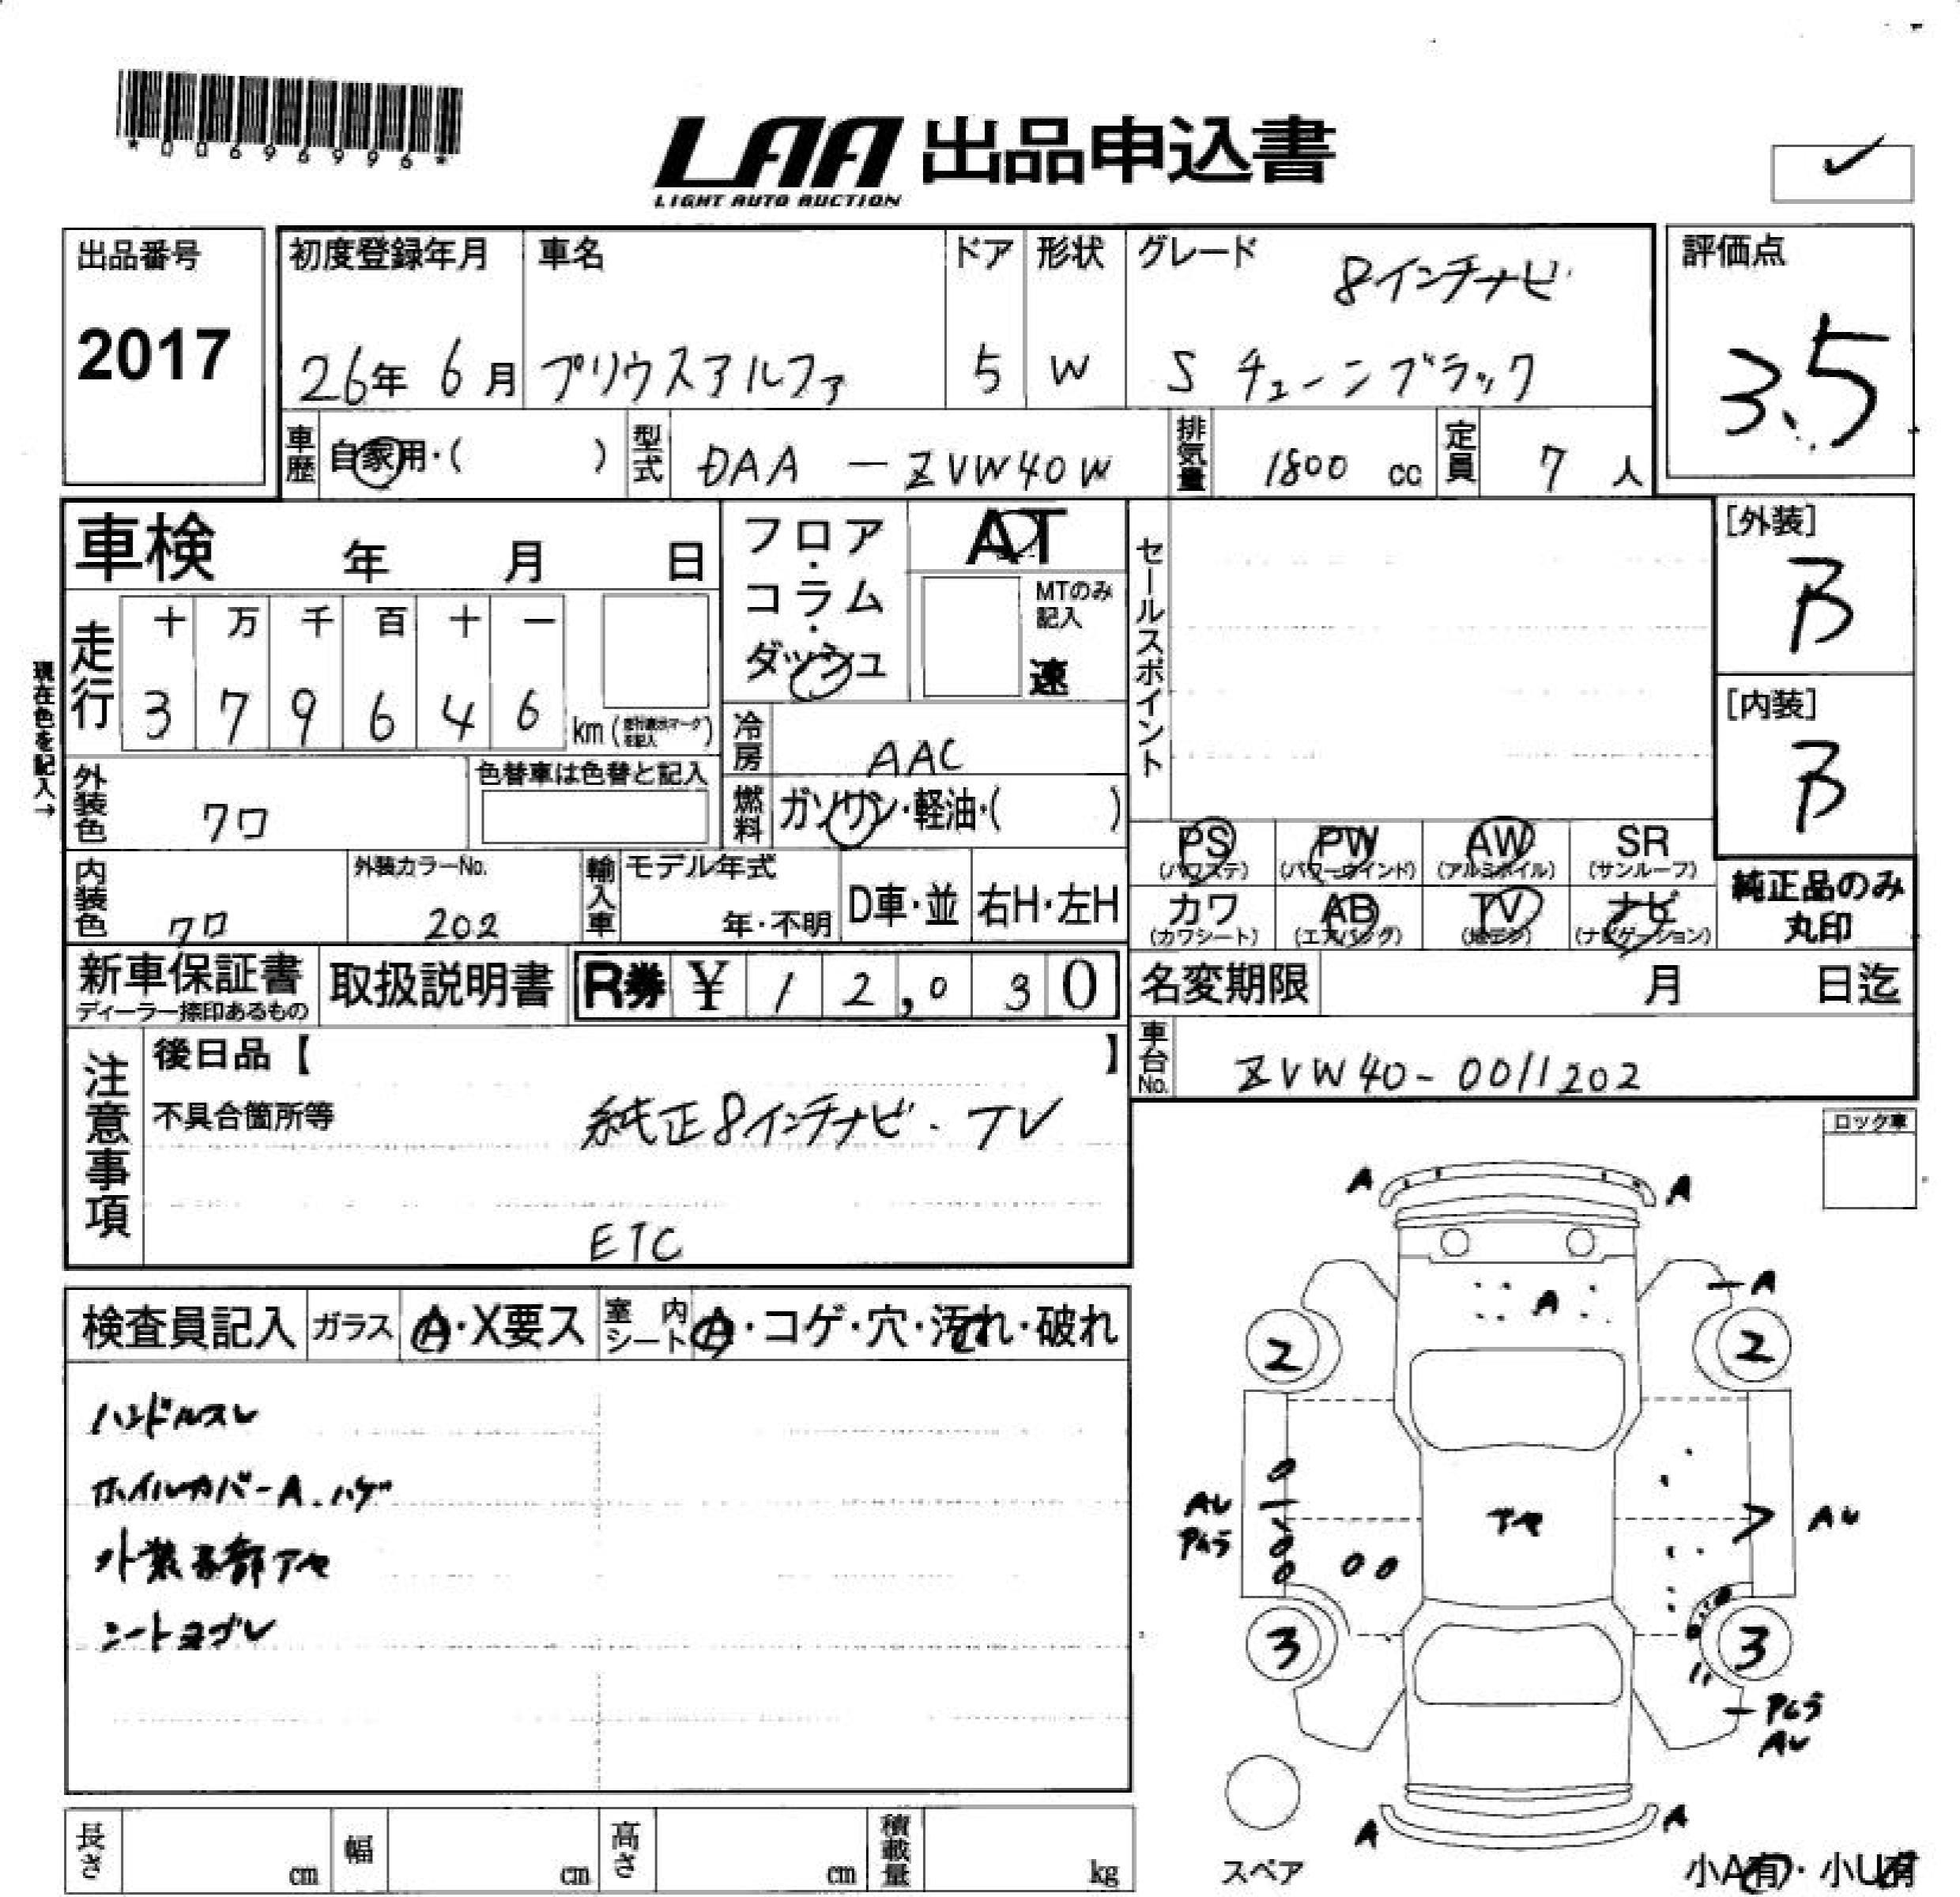 *00696996*
LAA 出品申込書
LIGHT AUTO AUCTION
出品番号
2017
初度登録年月
26年 6月
車名
プリウスアルファ
ドア
5
形状
W
グレード
8インチナビ
S チューンブラック
評価点
3.5
車歴 自家用・( )
型式 DAA － ZVW40W
排気量 1800 cc
定員 7 人
車検 年 月 日
現在色を記入→
走行
十 万 千 百 十 一
3 7 9 6 4 6 km(走行表示マークを記入)
フロア・コラム・ダッシュ
AT
MTのみ記入
速
冷房 AAC
燃料 ガソリン・軽油・( )
セールスポイント
[外装]
B
[内装]
B
外装色 クロ
色替車は色替と記入
内装色 クロ
外装カラーNo.
202
輸入車
モデル年式
年・不明
D車・並
右H・左H
PS (パワステ)
PW (パワーウインド)
AW (アルミホイル)
SR (サンルーフ)
カワ (カワシート)
AB (エアバッグ)
TV (地デジ)
ナビ (ナビゲーション)
純正品のみ丸印
新車保証書
ディーラー捺印あるもの
取扱説明書
R券 ¥ 12,030
名変期限 月 日迄
車台No. ZVW40-0011202
注意事項
後日品【 】
不具合箇所等
純正8インチナビ・TV
ETC
ロック車
検査員記入
ガラス A・X要ス
室内シート A・コゲ・穴・汚れ・破れ
ハンドルスレ
ホイルカバーA.ハゲ
外装各部アセ
シートヨゴレ
A A
A
A
2 2
AU
アセ
AU
3 3
AU
A A
スペア
小A有・小U有
長さ cm
幅 cm
高さ cm
積載量 kg